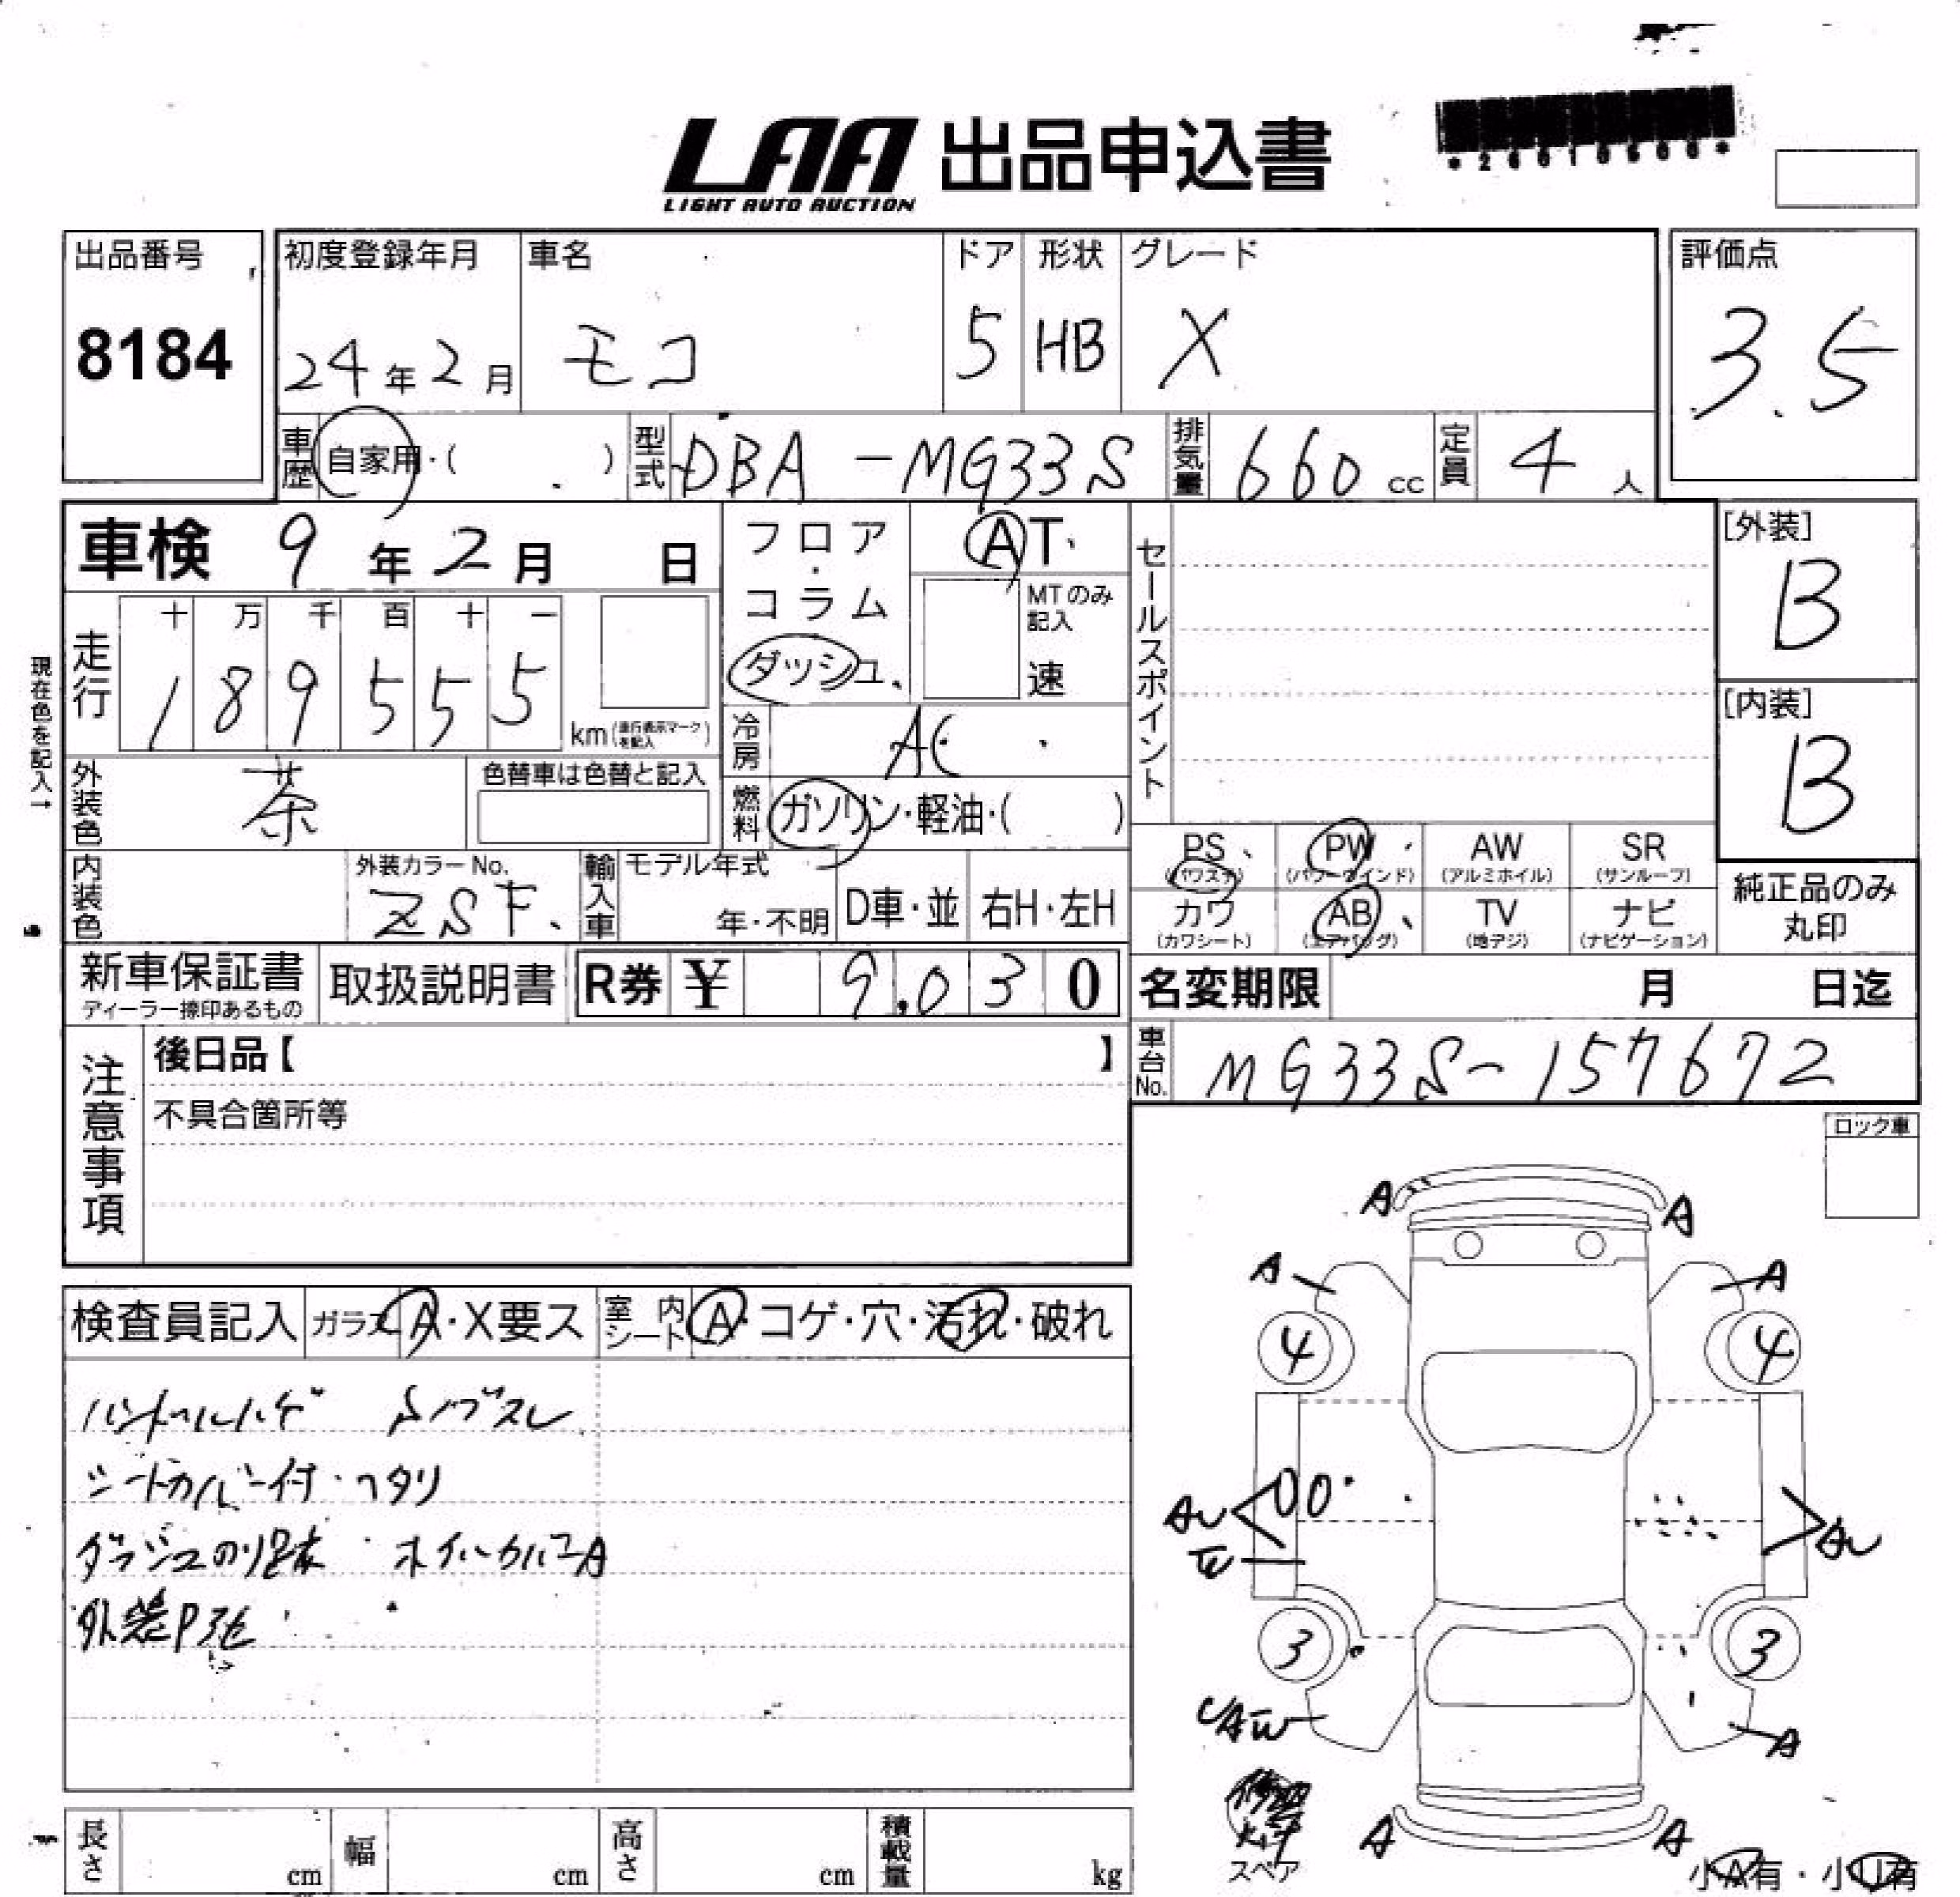 LAA 出品申込書
LIGHT AUTO AUCTION
出品番号
8184
初度登録年月
24年2月
車名
モコ
ドア
5
形状
HB
グレード
X
評価点
3.5
車歴 自家用・( )
型式 DBA-MG33S
排気量 660 cc
定員 4 人
車検 9年2月 日
フロア・コラム
ダッシュ
AT
MTのみ記入
速
セールスポイント
[外装]
B
現在色を記入→
走行
十 万 千 百 十 一
1 8 9 5 5 5
km(走行表示マークを記入)
冷房 AC
[内装]
B
外装色 茶
色替車は色替と記入
燃料 ガソリン・軽油・( )
PS (パワステ)
PW (パワーウインド)
AW (アルミホイル)
SR (サンルーフ)
内装色
外装カラーNo.
ZSF
輸入車 モデル年式
年・不明
D車・並
右H・左H
カワ (カワシート)
AB (エアバッグ)
TV (地デジ)
ナビ (ナビゲーション)
純正品のみ
丸印
新車保証書
ディーラー捺印あるもの
取扱説明書
R券 ¥ 9,030
名変期限 月 日迄
車台No. MG33S-157672
注意事項
後日品【 】
不具合箇所等
ロック車
検査員記入
ガラス A・X要ス
室内シート A・コゲ・穴・汚れ・破れ
ハンドルハゲ ノブスレ
シートカバー付・ヘタリ
ダッシュのり跡 ホイールカバーA
外装P
A A
A A
4 4
AU AU
3 3
A
A A
スペア
小A有・小U有
長さ cm
幅 cm
高さ cm
積載量 kg